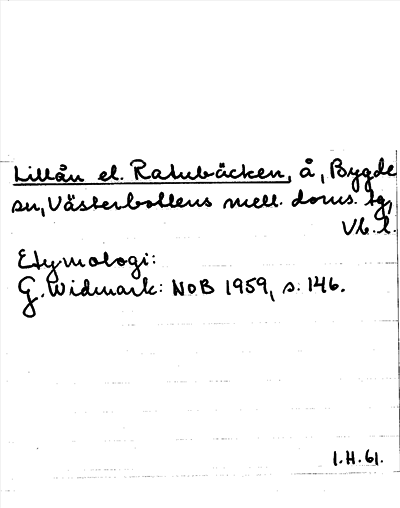 Lillån el. Ratubäcken, å, Bygde
sn, Västerbottens mell. doms. tg,
Vb. l.
Etymologi:
G. Widmark: NoB 1959, s. 146.
I.H. 61.